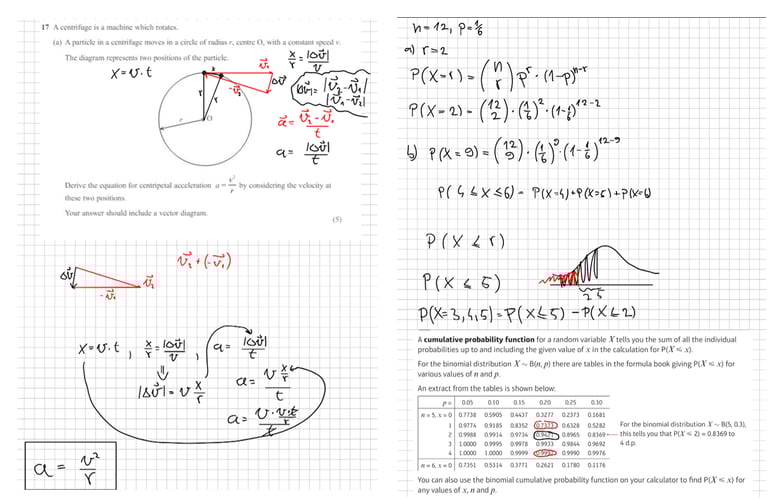 17 A centrifuge is a machine which rotates.
(a) A particle in a centrifuge moves in a circle of radius r, centre O, with a constant speed v.
The diagram represents two positions of the particle.
x = v · t
x
v⃗₁
-v⃗₂
Δv⃗
r
r
r
O
x/r = |Δv⃗|/v
|Δv⃗| = |v⃗₂ - v⃗₁|
|v⃗₁ - v⃗₂|
a⃗ = (v⃗₂ - v⃗₁)/t
a = |Δv⃗|/t
Derive the equation for centripetal acceleration a = v²/r by considering the velocity at
these two positions.
Your answer should include a vector diagram.
(5)
v⃗₂ + (-v⃗₁)
Δv⃗
v⃗₂
-v⃗₁
x = v · t , x/r = |Δv⃗|/v , a = |Δv⃗|/t
|Δv⃗| = v x/r
a = v x/r / t
a = v · v·t/r / t
a = v²/r
n = 12, p = 1/6
a) r = 2
P(X = r) = (n r) pʳ · (1-p)ⁿ⁻ʳ
P(X = 2) = (12 2) · (1/6)² · (1-1/6)¹²⁻²
b) P(X = 9) = (12 9) · (1/6)⁹ · (1-1/6)¹²⁻⁹
P(X ≤ r)
P(X ≤ 5)
2 5
P(X=3,4,5) = P(X≤5) - P(X≤2)
A cumulative probability function for a random variable X tells you the sum of all the individual
probabilities up to and including the given value of x in the calculation for P(X ≤ x).
For the binomial distribution X ~ B(n, p) there are tables in the formula book giving P(X ≤ x) for
various values of n and p.
An extract from the tables is shown below:
p = 0.05 0.10 0.15 0.20 0.25 0.30
n = 5, x = 0 0.7738 0.5905 0.4437 0.3277 0.2373 0.1681
1 0.9774 0.9185 0.8352 0.7373 0.6328 0.5282
2 0.9988 0.9914 0.9734 0.9421 0.8965 0.8369
3 1.0000 0.9995 0.9978 0.9933 0.9844 0.9692
4 1.0000 1.0000 0.9999 0.9997 0.9990 0.9976
n = 6, x = 0 0.7351 0.5314 0.3771 0.2621 0.1780 0.1176
For the binomial distribution X ~ B(5, 0.3),
this tells you that P(X ≤ 2) = 0.8369 to
4 d.p.
You can also use the binomial cumulative probability function on your calculator to find P(X ≤ x) for
any values of x, n and p.